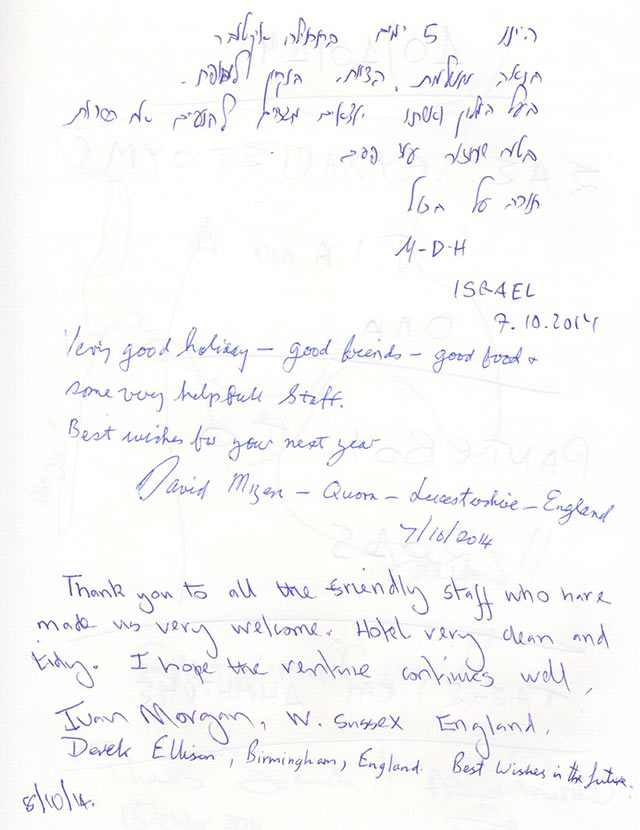 היינו 5 ימים בתחילת אוקטובר
הנאה מושלמת. הצוות, הנקיון למופת.
בעל המלון ואשתו יוצאים מגדרם להנעים את השהות
תודה על הכל
M-D-H
ISRAEL
7.10.2014
Very good holiday – good friends – good food &
some very helpfull staff.
Best wishes for your next year
David Mizen – Quorn – Leicestershire – England
7/10/2014
Thank you to all the friendly staff who have
made us very welcome. Hotel very clean and
tidy. I hope the venture continues well,
Ivan Morgan, W. Sussex England.
Derek Ellison, Birmingham, England. Best Wishes in the future.
8/10/14.